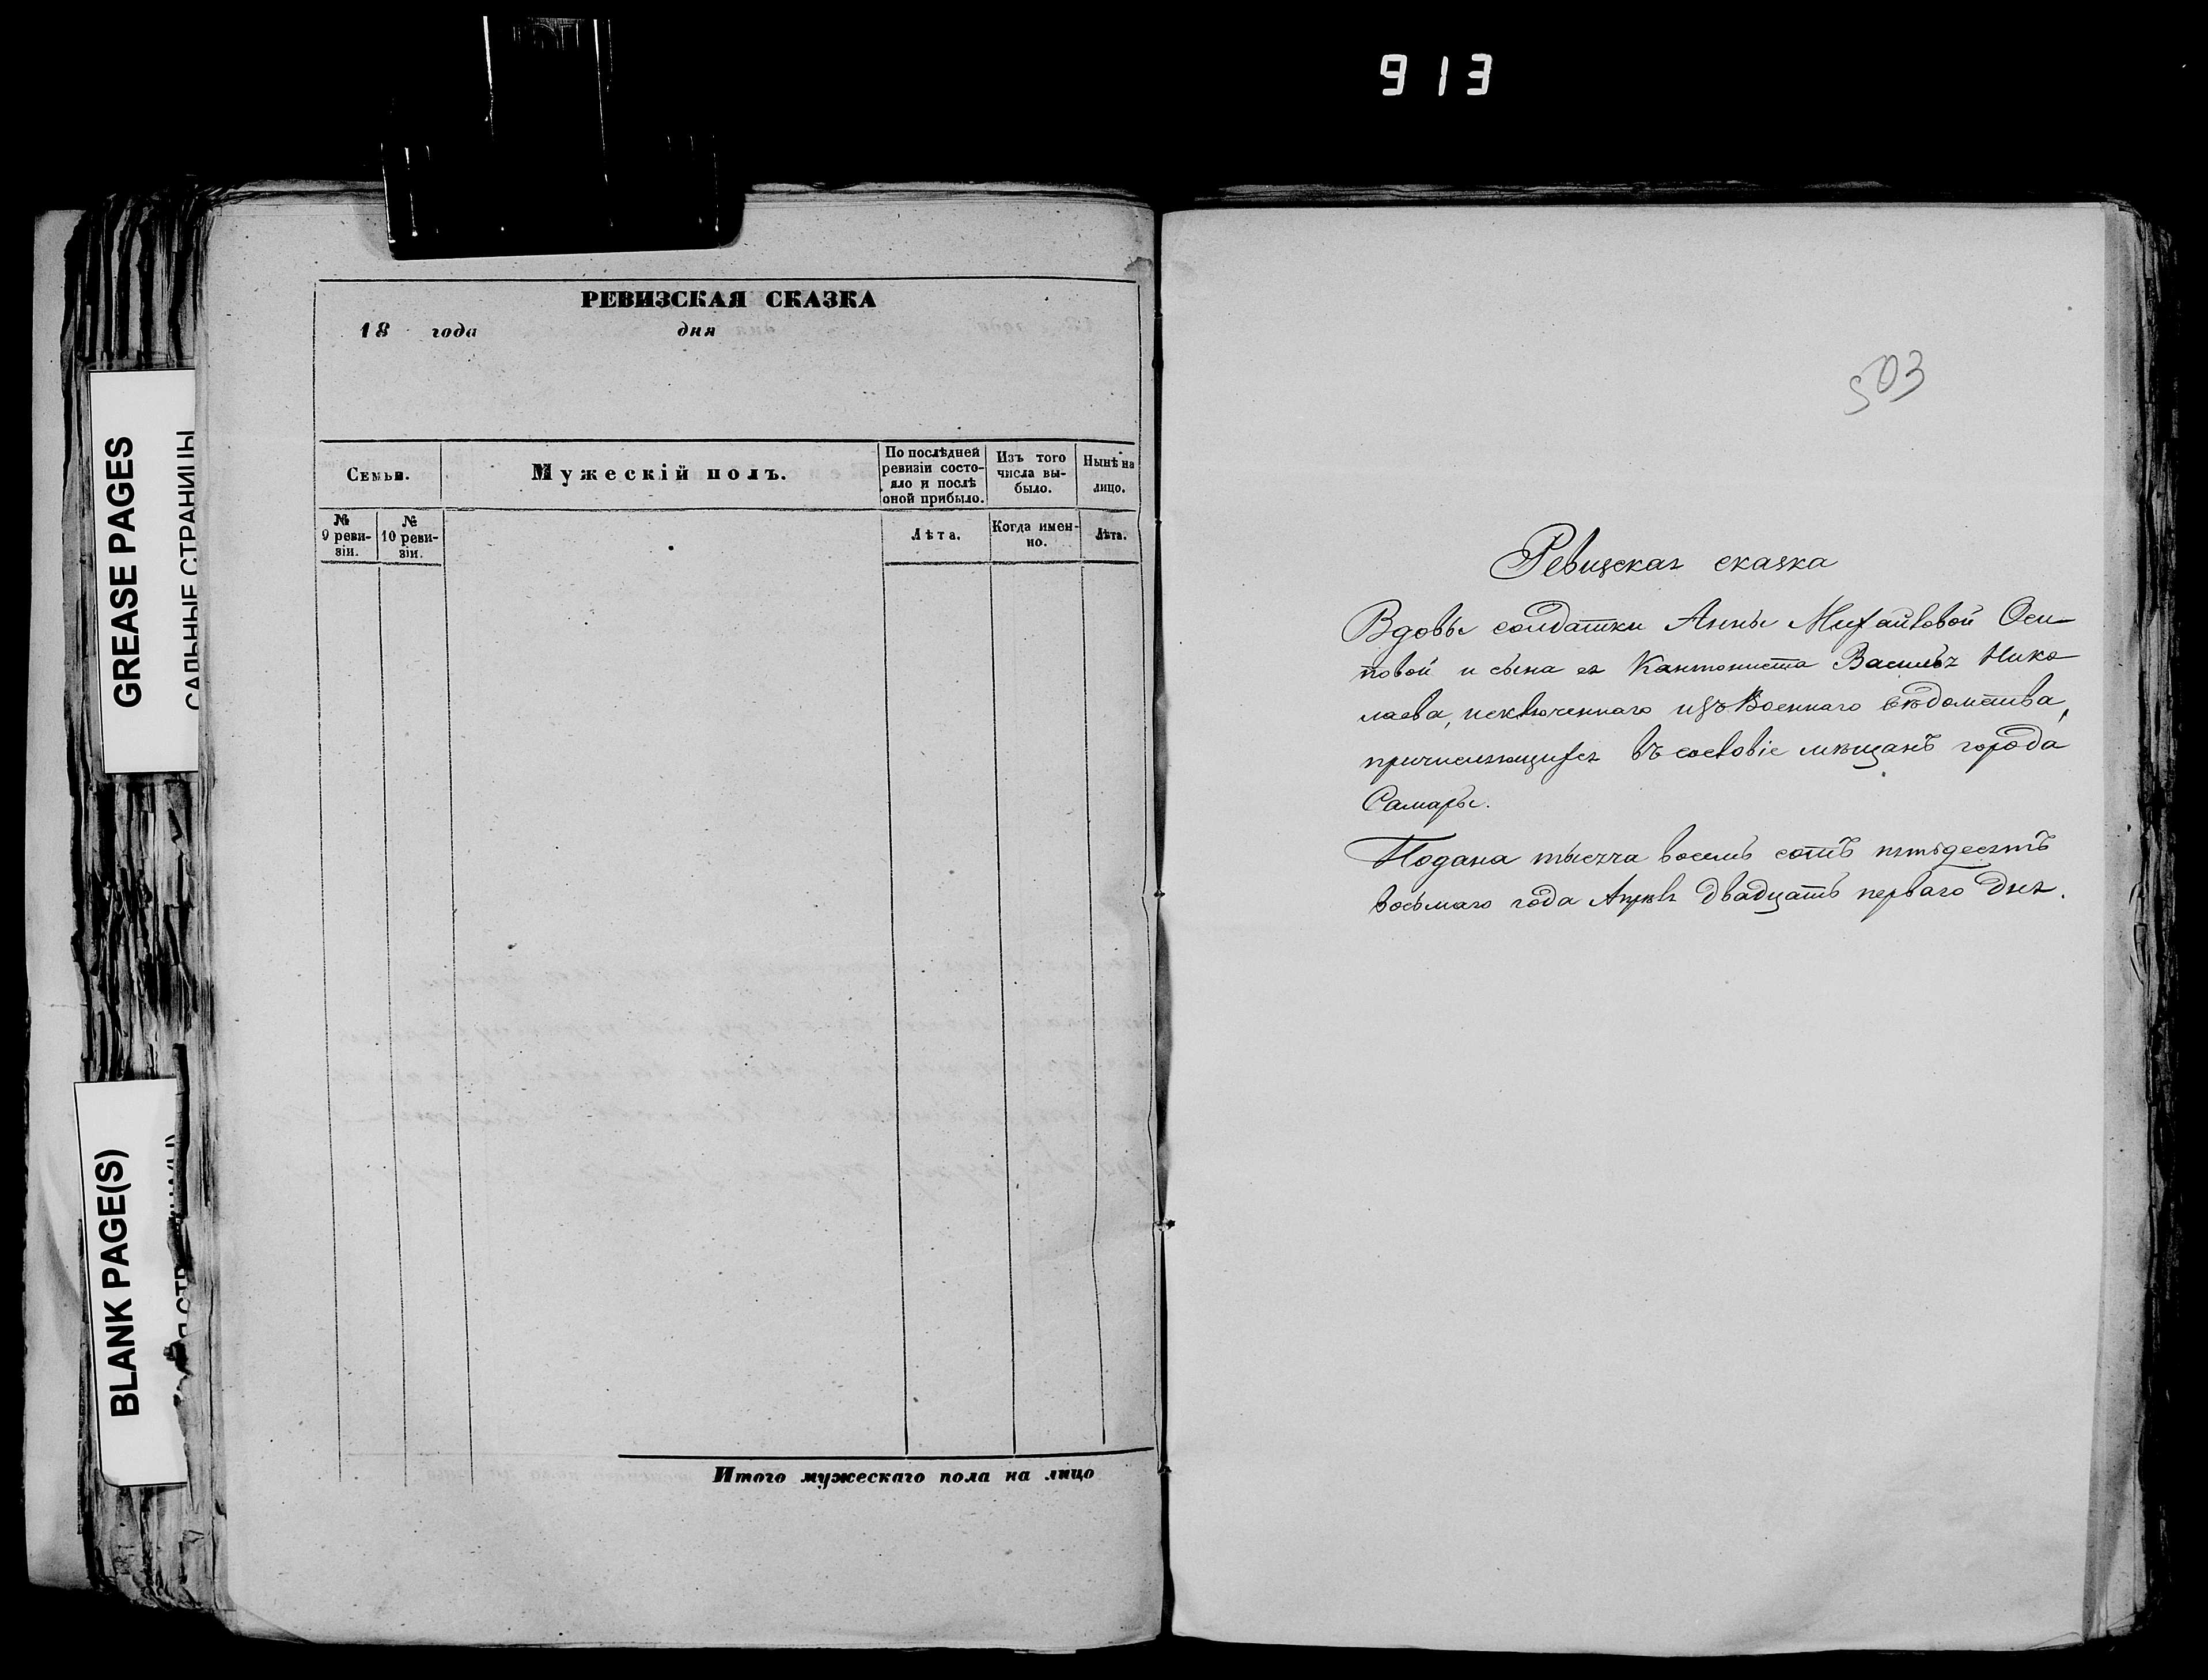 913
GREASE PAGES
САЛЬНЫЕ СТРАНИЦЫ
BLANK PAGE(S)
РЕВИЗСКАЯ СКАЗКА
18 года дня
Семьи.
Мужескій полъ.
По послѣдней
ревизіи состо-
яло и послѣ
оной прибыло.
Изъ того
числа вы-
было.
Нынѣ на
лицо.
№
9 реви-
зіи.
№
10 реви-
зіи.
Лѣта.
Когда имен-
но.
Лѣта.
Итого мужескаго пола на лицо
503
Ревизская сказка
Вдовы солдатки Анны Михайловой Оси-
повой и сына ея Кантониста Василья Нико
лаева, исключеннаго изъ Военнаго вѣдомства,
причисляющихся въ сословіе мѣщанъ города
Самары.
Подана тысяча восемь сотъ пятьдесятъ
восьмаго года Апрѣля двадцать перваго дня.